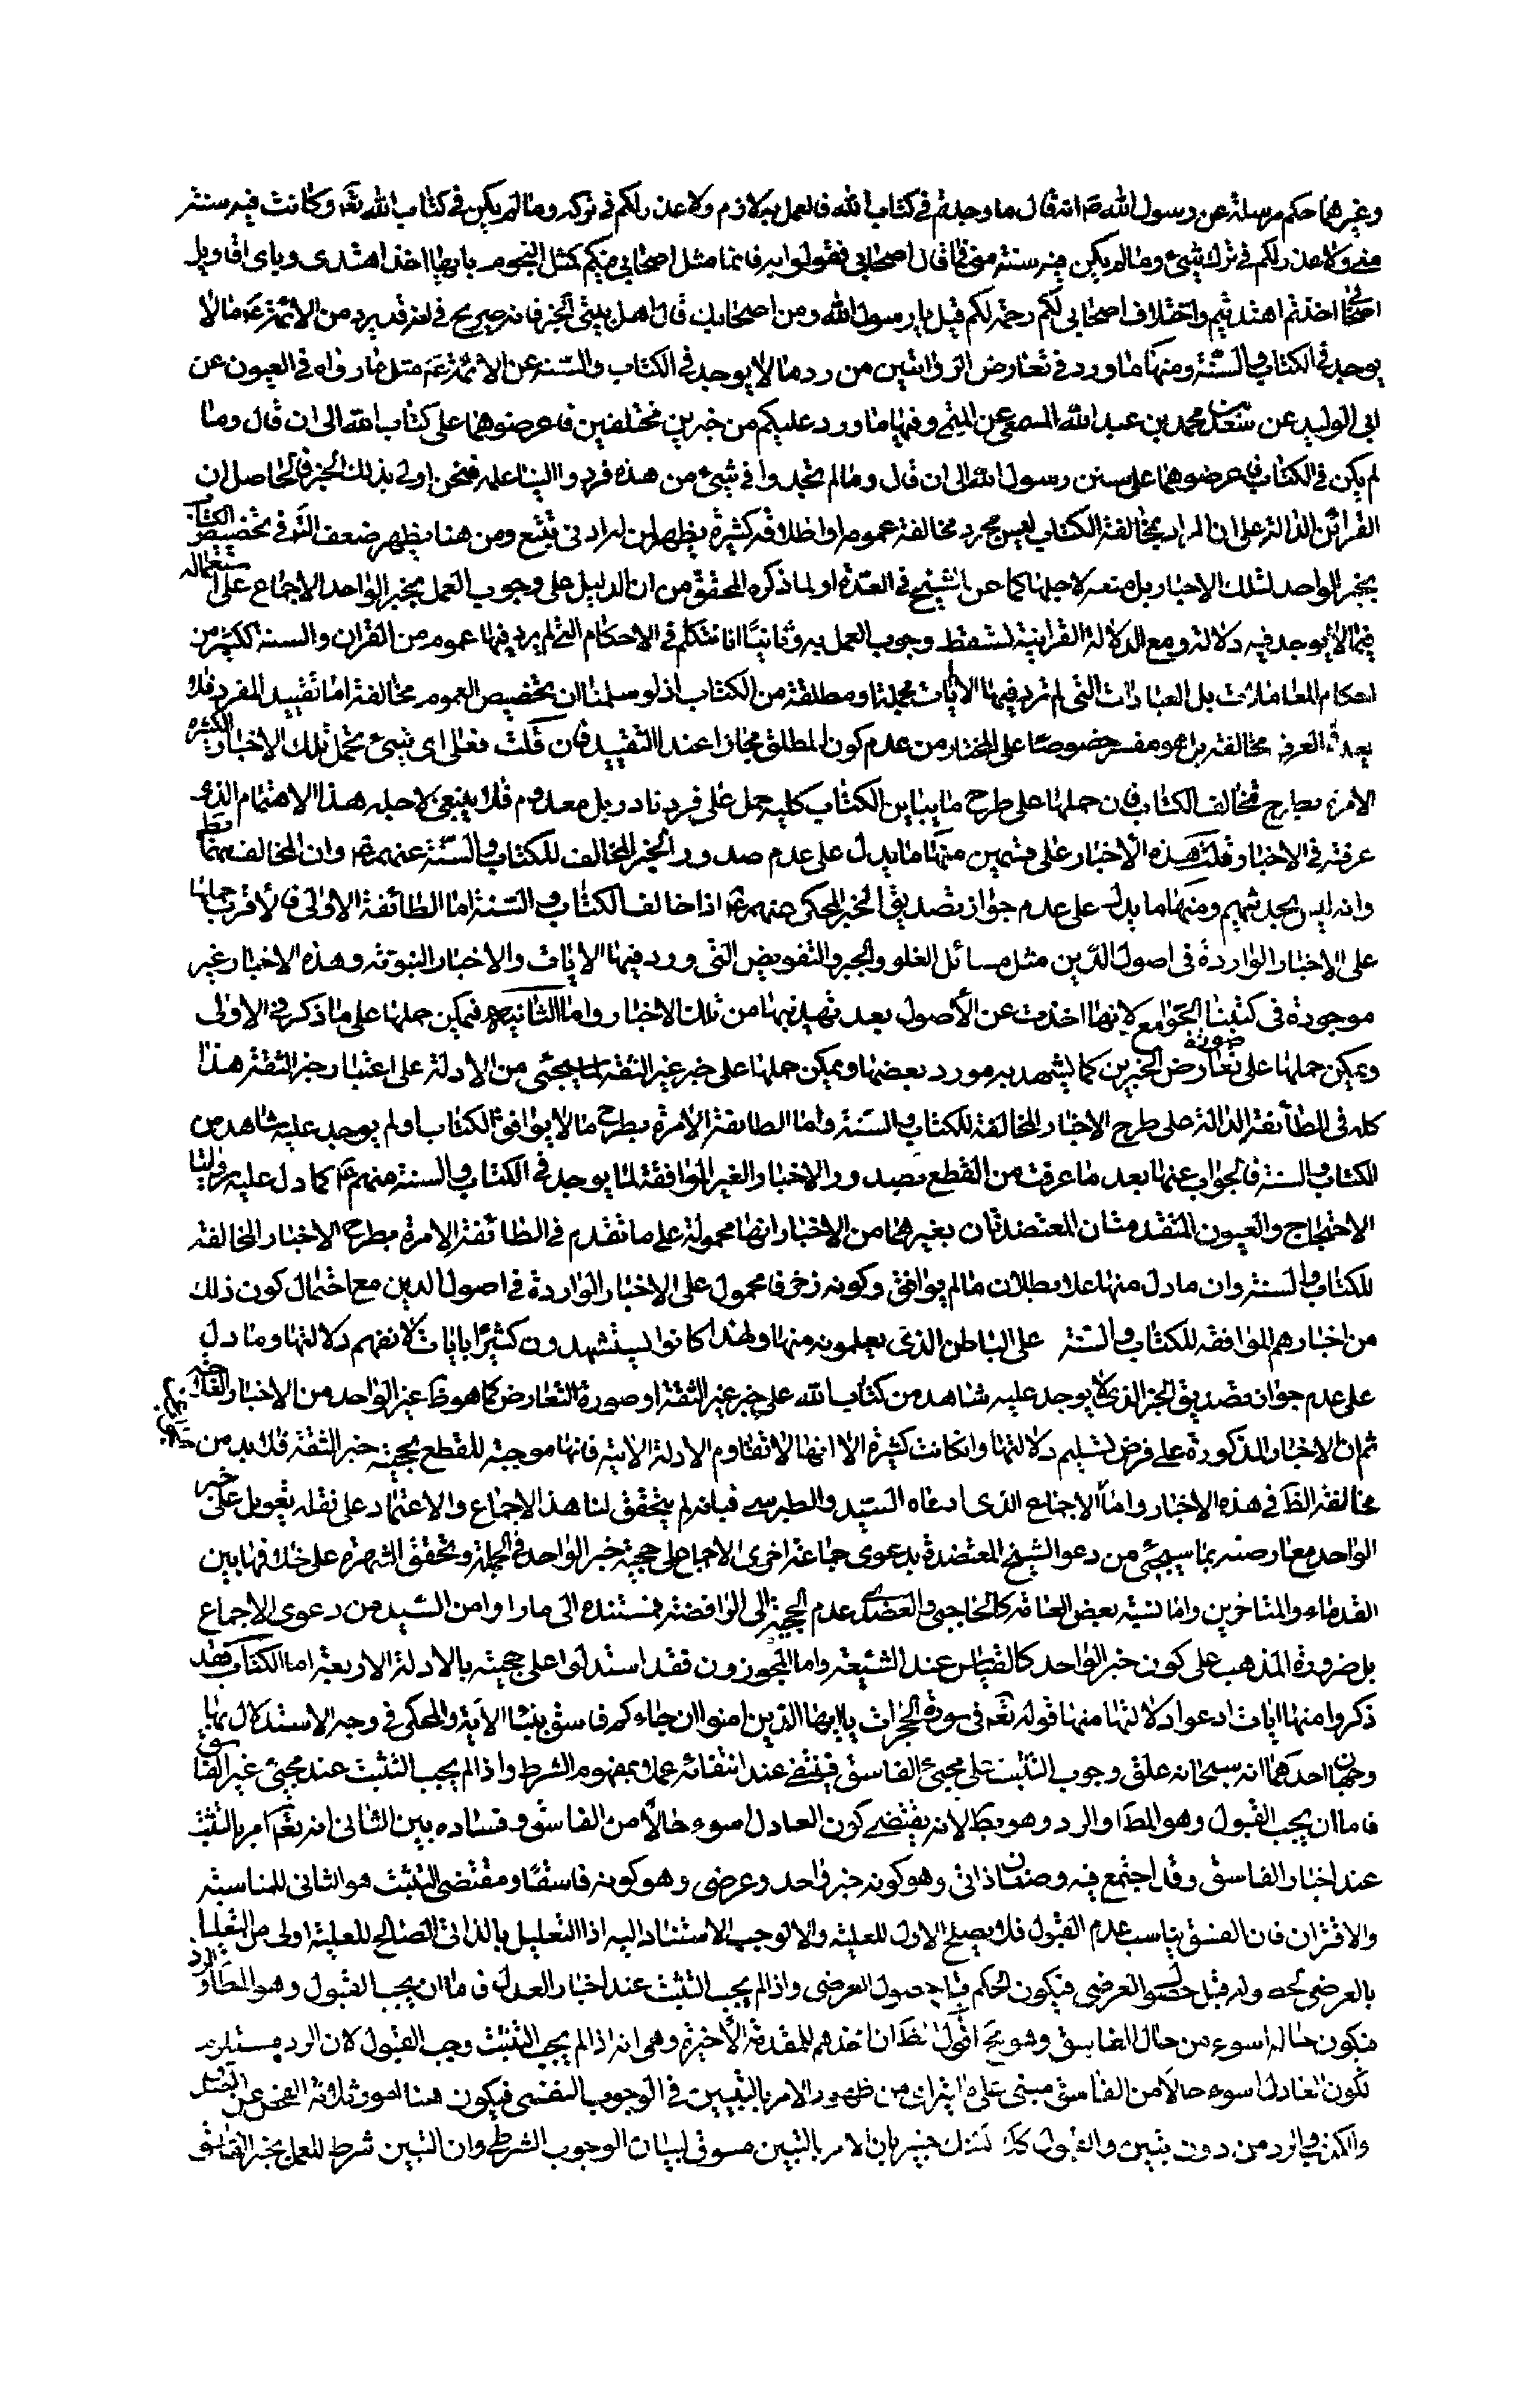 وغيرهما حكم مرسلة عن رسول الله ص انه قال ما وجدتم في كتاب الله فالعمل به لازم ولا عذر لكم في تركه وما لم يكن في كتاب الله تعه وكانت فيه سنة
مني ولا عذر لكم في ترك شيئ وما لم يكن فيه سنة مني فما قال اصحابي فقولوا به فانما مثل اصحابي فيكم كمثل النجوم بايها اخذ اهتدى وباى اقاويل
اصحابي اخذتم اهتديتم واختلاف اصحابي لكم رحمة لكم قيل يا رسول الله ومن اصحابك قال اهل بيتي الخبر فانه صريح في انه قد يرد من الائمة ع ما لا
يوجد في الكتاب والسنة ومنها ما ورد في تعارض الروايتين من رد ما لا يوجد في الكتاب والسنة عن الائمة ع مثل ما رواه في العيون عن
ابى الوليد عن سعد محمد بن عبد الله المسمعي عن الميثمي وفيها ما ورد عليكم من خبرين مختلفين فاعرضوهما على كتاب الله الى ان قال وما
لم يكن في الكتاب فاعرضوهما على سنن رسول الله الى ان قال وما لم تجدوا في شيئ من هذه فردوا الينا علمه فنحن اولى بذلك الخبر فالحاصل ان
القرائن الدالة على ان المراد بمخالفة الكتاب ليس مجرد مخالفة عمومه او اطلاقه كثيرة يظهر لمن له ادنى تتبع ومن هنا يظهر ضعف التمـ في تخصيص الكتاب
بخبر الواحد لتلك الاخبار بل منعه لاجلها كما عن الشيخ في العدة او لما ذكره المحقق من ان الدليل على وجوب العمل بخبر الواحد الاجماع على استعماله
فيما لا يوجد فيه دلالة ومع الدلالة القرانية تسقط وجوب العمل به وثانيا انا نتكلم في الاحكام التي لم يرد فيها عموم من القران والسنة ككثير من
احكام المعاملات بل العبادات التى لم ترد فيها الا ايات مجملة او مطلقة من الكتاب اذ لو سلمنا ان تخصيص العموم مخالفة اما تقييد المفرد فلا
يعد في العرف مخالفة بل هو مفسر خصوصا على المختار من عدم كون المطلق مجازا عند التقييد فان قلت فعلى اى شيئ تحمل تلك الاخبار الكثيرة
الامرة بطرح مخالف الكتاب فان حملها على طرح ما يباين الكتاب كلية حمل على فرد نادر بل معدوم فلا ينبغي لاجله هذا الاهتمام الذى
عرفته في الاخبار قلت هذه الاخبار على قسمين منها ما يدل على عدم صدور الخبر المخالف للكتاب والسنة عنهم ع وان المخالف لهما باطل
وانه ليس بحديثهم ومنها ما يدل على عدم جواز تصديق الخبر المحكى عنهم ع اذا خالف الكتاب والسنة اما الطائفة الاولى فالاقرب حملها
على الاخبار الواردة في اصول الدين مثل مسائل الغلو والجبر والتفويض التى ورد فيها الايات والاخبار النبوية وهذه الاخبار غير
موجودة في كتبنا الجوامع لانها اخذت عن الأصول بعد تهذيبها من تلك الاخبار واما الثانية فيمكن حملها على ما ذكر في الاولى
ويمكن حملها على صورة تعارض الخبرين كما يشهد به مورد بعضها ويمكن حملها على خبر غير الثقة لما سيجئى من الأدلة على اعتبار خبر الثقة هذا
كله في الطائفة الدالة على طرح الاخبار المخالفة للكتاب والسنة واما الطائفة الامرة بطرح ما لا يوافق الكتاب او لم يوجد عليه شاهد من
الكتاب والسنة فالجواب عنها بعد ما عرفت من القطع بصدور الاخبار الغير الموافقة لما يوجد في الكتاب والسنة منهم ع كما دل عليه روايتا
الاحتجاج والعيون المتقدمتان المعتضدتان بغيرهما من الاخبار انها محمولة على ما تقدم في الطائفة الامرة بطرح الاخبار المخالفة
للكتاب والسنة وان ما دل منها على بطلان ما لم يوافق وكونه زخرفا محمول على الاخبار الواردة في اصول الدين مع احتمال كون ذلك
من اخبارهم الموافقة للكتاب والسنة على الباطن الذى يعلمونه منها ولهذا كانوا يستشهدون كثيرا بايات لا نفهم دلالتها وما دل
على عدم جواز تصديق الخبر الذى لا يوجد عليه شاهد من كتاب الله على خبر غير الثقة او صورة التعارض كما هو ظ غير الواحد من الاخبار العلاجية
ثم ان الاخبار المذكورة على فرض تسليم دلالتها وان كانت كثيرة الا انها لا تقاوم الادلة الاتية فانها موجبة للقطع بحجية خبر الثقة فلا بد من
مخالفة الظ في هذه الاخبار واما الاجماع الذى ادعاه السيد والطبرسي فبانه لم يتحقق لنا هذا الاجماع والاعتماد على نقله تعويل على خبر
الواحد مع معارضته بما سيجئى من دعوى الشيخ المعتضدة بدعوى جماعة اخرى الاجماع على حجية خبر الواحد في الجملة وتحقق الشهرة على خلافها بين
القدماء والمتاخرين واما نسبة بعض العامة كالحاجبي والعضدى عدم الحجية الى الرافضة فمستندة الى ما راوا من السيد من دعوى الاجماع
بل ضرورة المذهب على كون خبر الواحد كالقياس عند الشيعة واما المجوزون فقد استدلوا على حجيته بالادلة الاربعة اما الكتاب فقد
ذكروا منها ايات ادعوا دلالتها منها قوله تعه في سورة الحجرات يا ايها الذين امنوا ان جاءكم فاسق بنبأ الاية والمحكى في وجه الاستدلال بها
وجهان احدهما انه سبحانه علق وجوب التثبت على مجئ الفاسق فينتفى عند انتفائه عملا بمفهوم الشرط واذا لم يجب التثبت عند مجئى غير الفاسق
فاما ان يجب القبول وهو المط او الرد وهو بط لانه يقتضى كون العادل اسوء حالا من الفاسق وفساده بين الثانى انه تعه امر بالتثبت
عند اخبار الفاسق وقد اجتمع فيه وصفان ذاتى وهو كونه خبر واحد وعرضى وهو كونه فاسقا ومقتضى التثبت هو الثانى للمناسبة
والاقتران فان الفسق يناسب عدم القبول فلا يصلح الاول للعلية والا لوجب الاستناد اليه اذ التعليل بالذاتى الصالح للعلية اولى من التعليل
بالعرضى لحصوله قبل حصول العرضى فيكون الحكم قبل حصول العرضى واذا لم يجب التثبت عند اخبار العدل فاما ان يجب القبول وهو المط او الرد
فيكون حاله اسوء من حال الفاسق وهو مح اقول الظ ان اخذهم للمقدمة الأخيرة وهى انه اذا لم يجب التثبت وجب القبول لان الرد مستلزم
لكون العادل اسوء حالا من الفاسق مبنى على ما يتراى من ظهور الامر بالتبين في الوجوب النفسى فيكون هنا امور ثلاثة الفحص عن الصدق
والكذب والرد من دون تبين والقبول كذلك لكنك خبير بان الامر بالتبين مسوق لبيان الوجوب الشرطى وان التبين شرط للعمل بخبر الفاسق